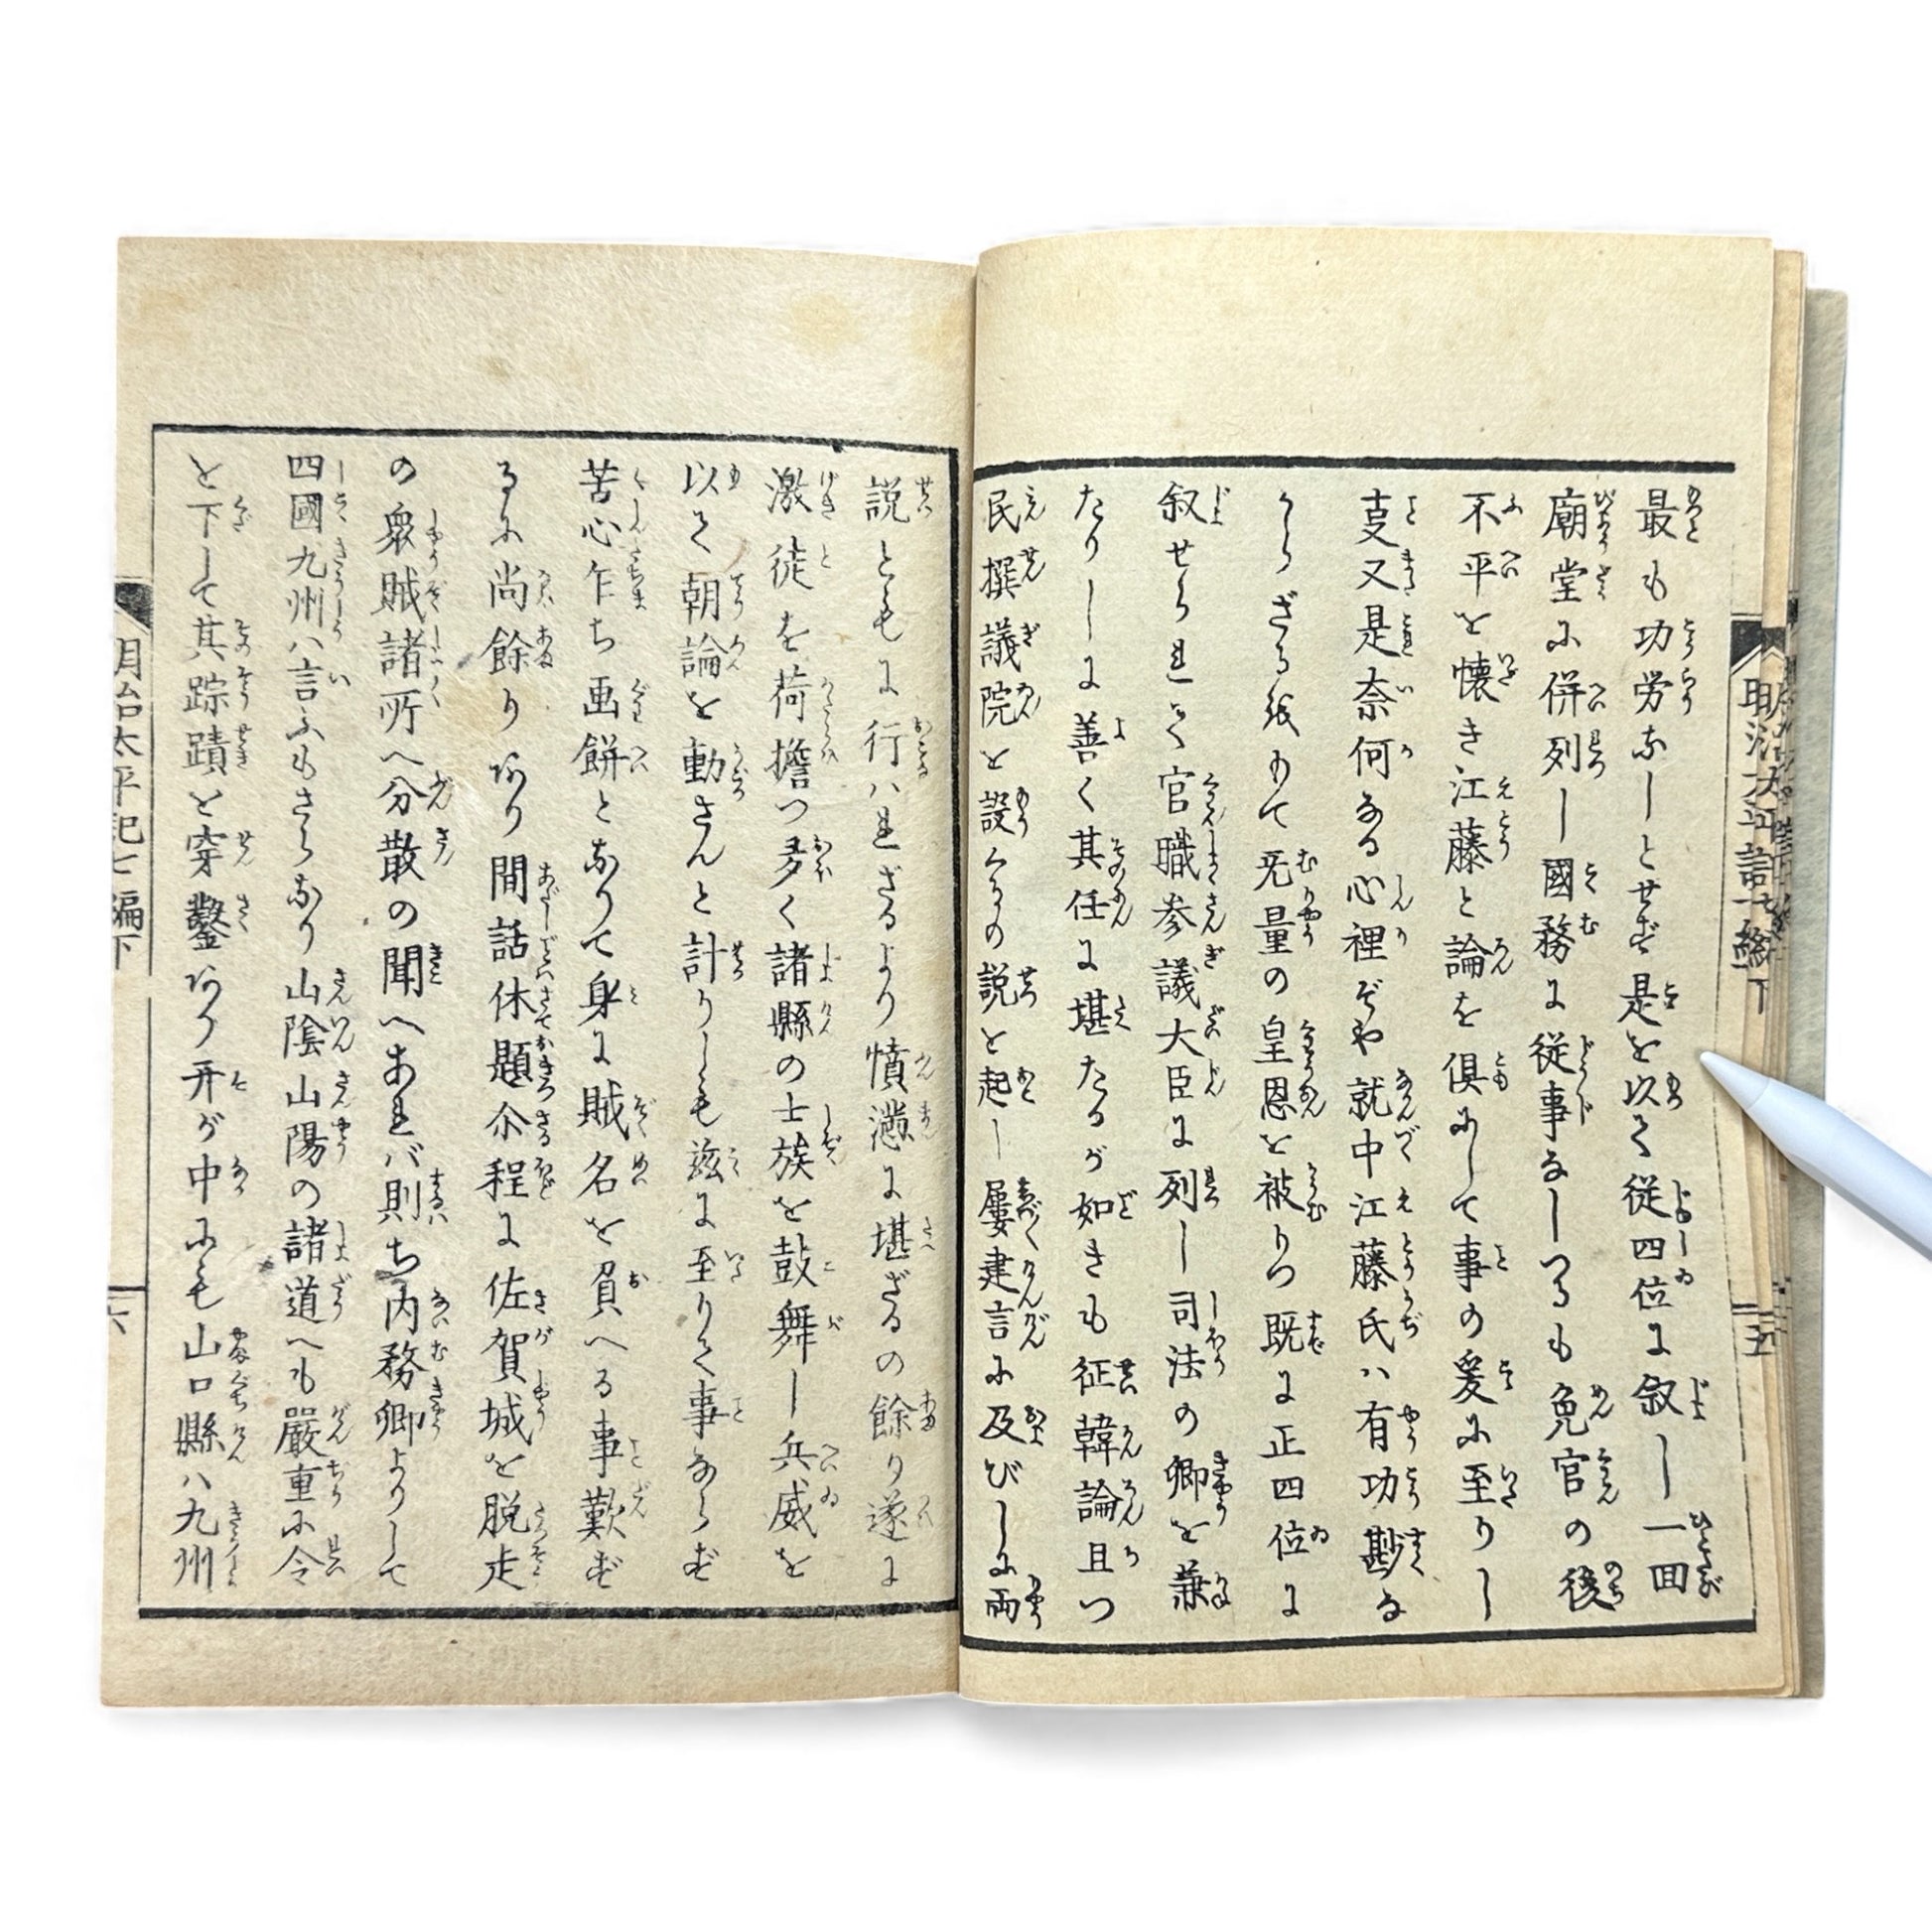 最も功労なしとせず是を以て従四位に叙し一回
廟堂に併列し國務に従事なしつるも免官の後
不平を懐き江藤と論を倶にして事の爰に至りし
支又是奈何なる心裡ぞや就中江藤氏ハ有功尠な
からざる純もて旡量の皇恩を被りつ既に正四位に
叙せられて官職参議大臣に列し司法の卿を兼
たりしに善く其任に堪たるが如きも征韓論且つ
民撰議院を設くるの説を起し屢建言に及びしに両
説ともに行ハれざるより憤懣に堪ざるの餘り遂に
激徒を荷擔つ多く諸縣の士族を鼓舞し兵威を
以て朝論を動さんと計りしも茲に至りて事ならず
苦心乍ち画餅となりて身に賊名を負へる事歎ず
るに尚餘りあり間話休題尒程に佐賀城を脱走
の衆賊諸所へ分散の聞へあれバ則ち内務卿よりして
四國九州ハ言ふもさらなり山陰山陽の諸道へも嚴重に令
を下して其踪蹟を穿鑿あり开が中にも山口縣ハ九州
明治太平記七編下
五
明治太平記七編下
六